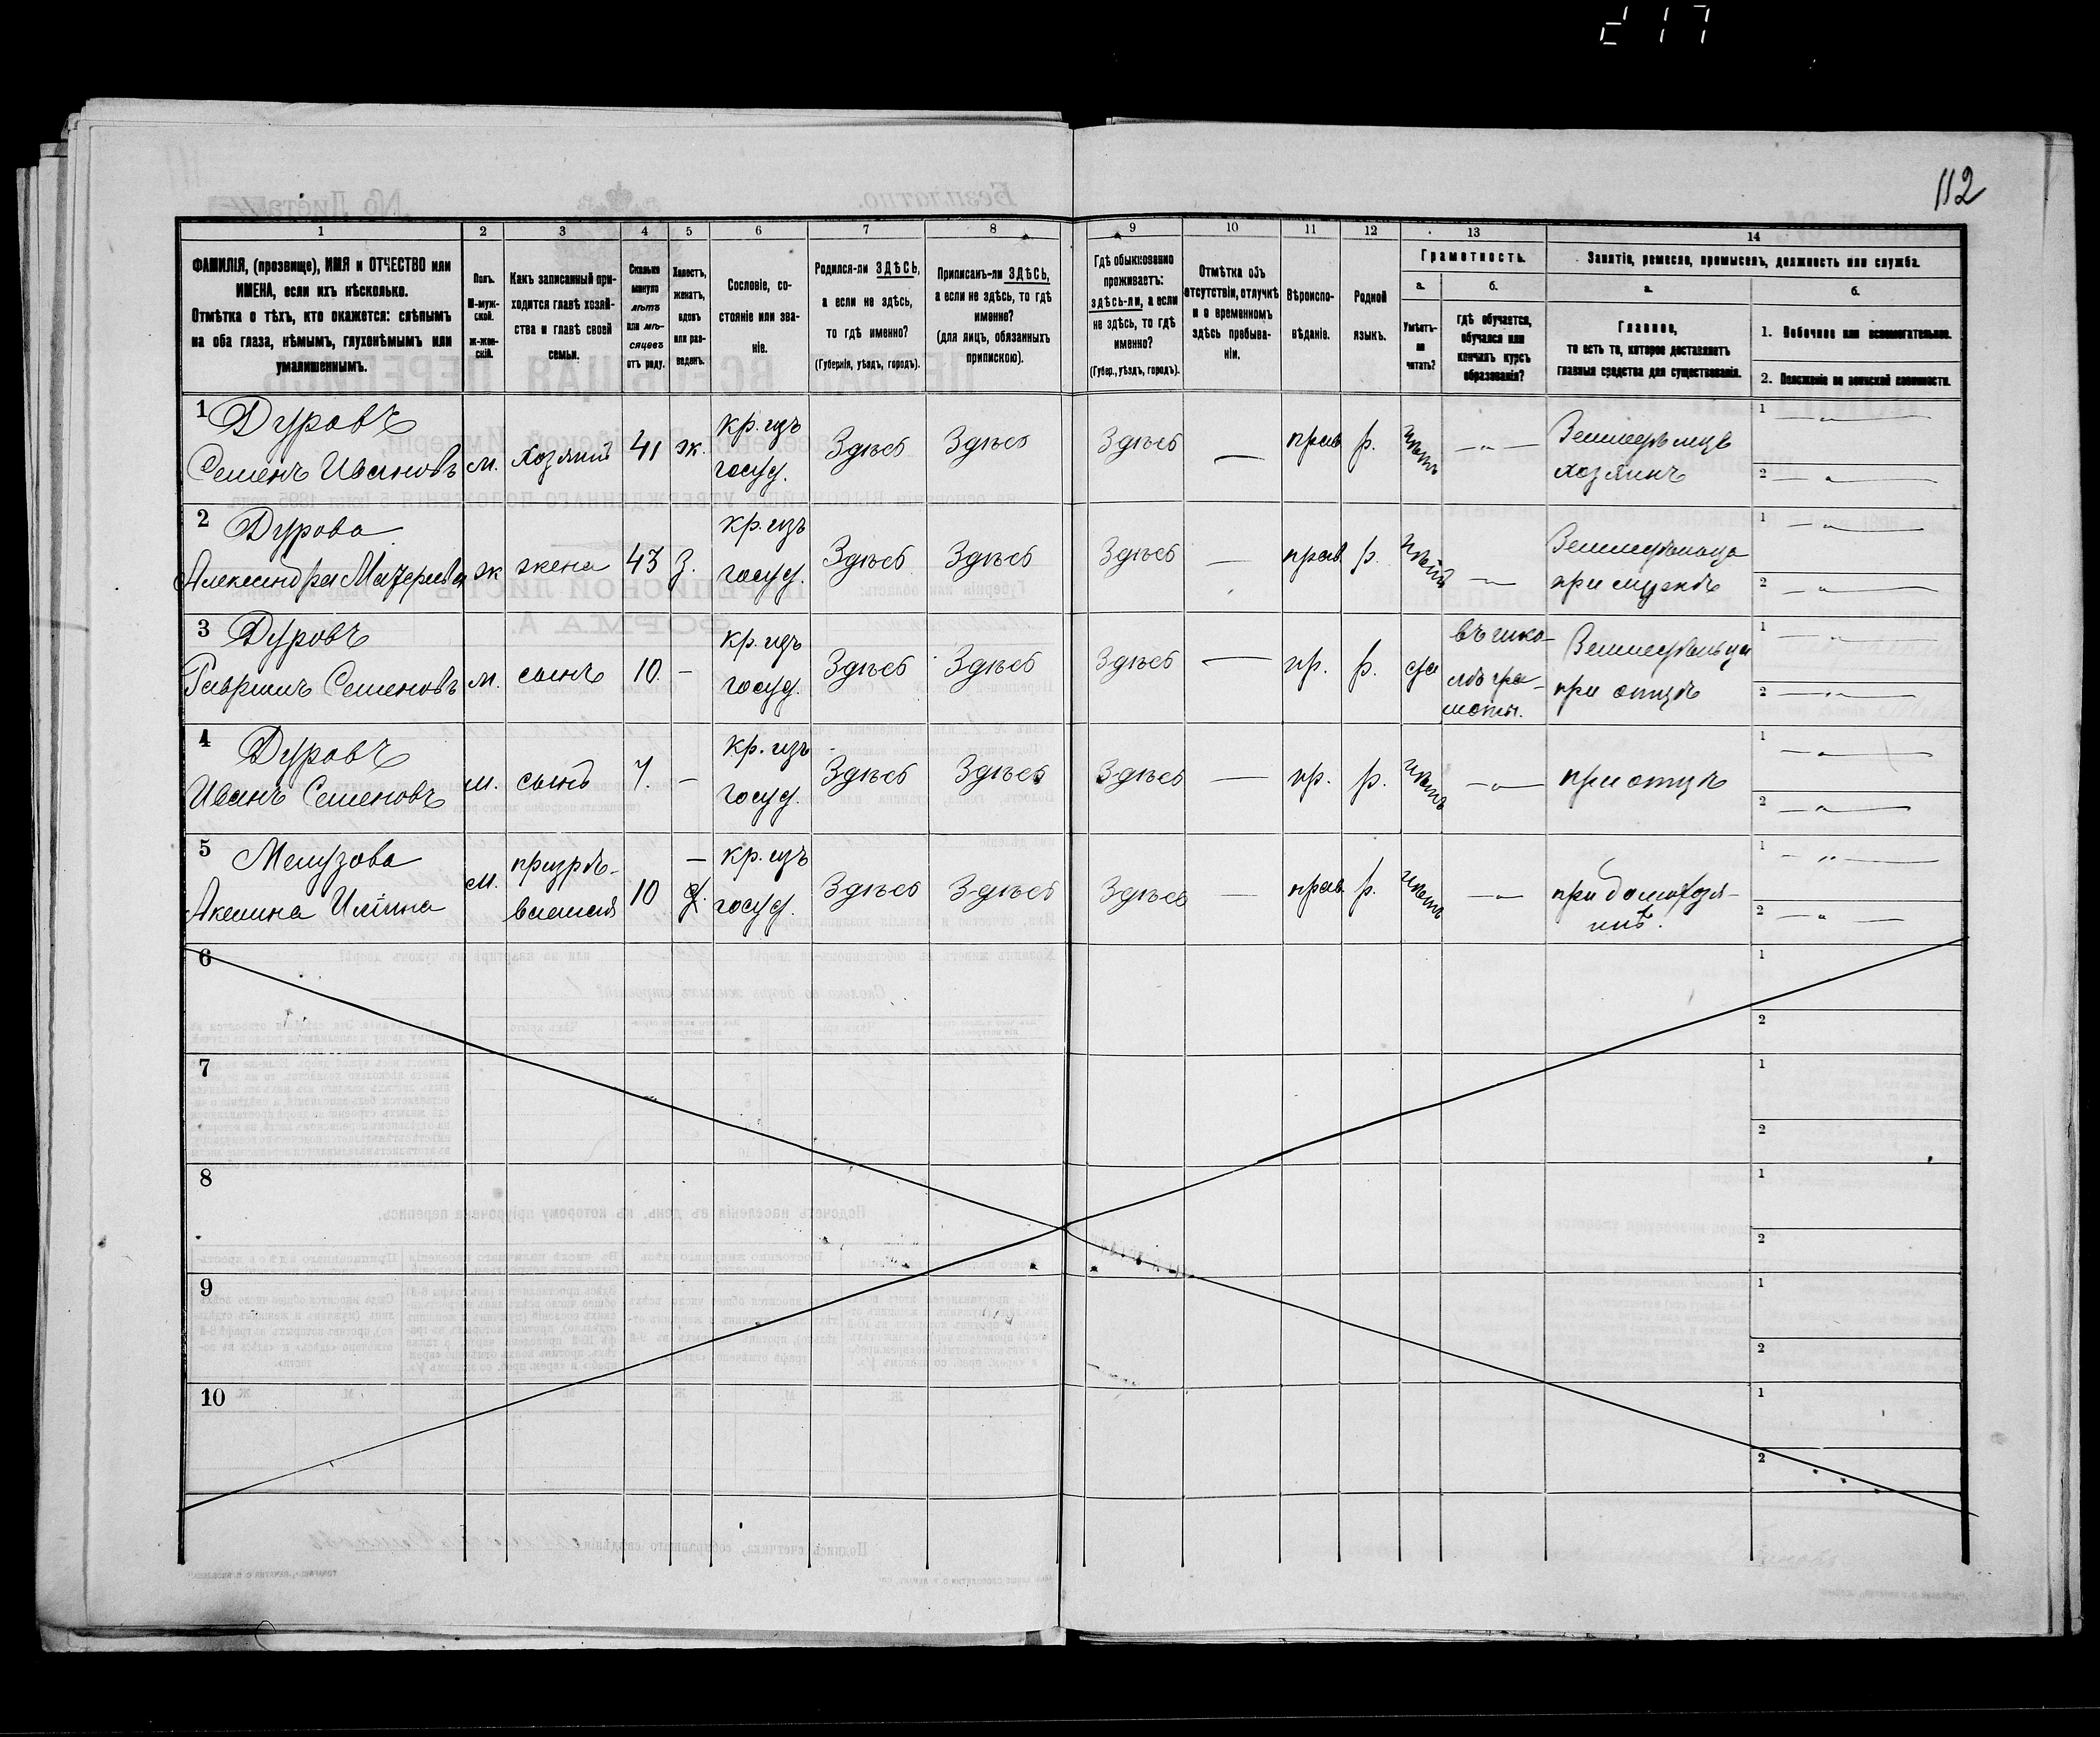 112
1 2 3 4 5 6 7 8 9 10 11 12 13 14
ФАМИЛІЯ, (прозвище), ИМЯ и ОТЧЕСТВО или
ИМЕНА, если ихъ нѣсколько.
Отмѣтка о тѣхъ, кто окажется: слѣпымъ
на оба глаза, нѣмымъ, глухонѣмымъ или
умалишеннымъ.
Полъ.
М-муж-
ской.
Ж-жен-
скій.
Какъ записанный при-
ходится главѣ хозяй-
ства и главѣ своей
семьи.
Сколько
минуло
лѣтъ
или мѣ-
сяцевъ
отъ роду.
Холостъ,
женатъ,
вдовъ
или раз-
веденъ.
Сословіе, со-
стояніе или зва-
ніе.
Родился-ли ЗДѢСЬ,
а если не здѣсь,
то гдѣ именно?
(Губернія, уѣздъ, городъ).
Приписанъ-ли ЗДѢСЬ,
а если не здѣсь, то гдѣ
именно?
(для лицъ, обязанныхъ
припискою).
Гдѣ обыкновенно
проживаетъ:
здѣсь-ли, а если
не здѣсь, то гдѣ
именно?
(Губер., уѣздъ, городъ).
Отмѣтка объ
отсутствіи, отлучкѣ
и о временномъ
здѣсь пребыва-
ніи.
Вѣроиспо-
вѣданіе.
Родной
языкъ.
Грамотность.
а.
Умѣетъ-
ли
читать?
б.
гдѣ обучается,
обучался или
кончилъ курсъ
образованія?
Занятіе, ремесло, промыселъ, должность или служба.
а.
Главное,
то есть то, которое доставляетъ
главныя средства для существованія.
б.
1. Побочное или вспомогательное.
2. Положеніе по воинской повинности.
1 Дуровъ
Семенъ Ивановъ м. хозяинъ 41 ж. кр. изъ
госуд. Здѣсь Здѣсь Здѣсь — прав р. нѣтъ — „ — Земледѣлецъ
хозяинъ
1 — „ —
2 — „ —
2 Дурова
Александра ж жена 43 З. кр. изъ
госуд. Здѣсь Здѣсь Здѣсь — прав. р. нѣтъ — „ — Земледѣлица
при мужѣ
1 — „ —
2 — „ —
3 Дуровъ
Гаврилъ Семеновъ м. сынъ 10. — кр. изъ
госуд. Здѣсь Здѣсь Здѣсь — пр. р. да въ шко-
лѣ гра-
моты. Земледѣльца
при отцѣ
1 — „ —
2 — „ —
4 Дуровъ
Иванъ Семеновъ м. сынъ 7. — кр. изъ
госуд. Здѣсь Здѣсь Здѣсь — пр. р. нѣтъ — „ — при отцѣ
1 — „ —
2 — „ —
5
Акелина Иліина м. призрѣ-
ваемая 10 — кр. изъ
госуд. Здѣсь Здѣсь Здѣсь — прав. р. нѣтъ — „ — при домохозя-
инѣ.
1 — „ —
2 — „ —
6
1
2
7
1
2
8
1
2
9
1
2
10
1
2